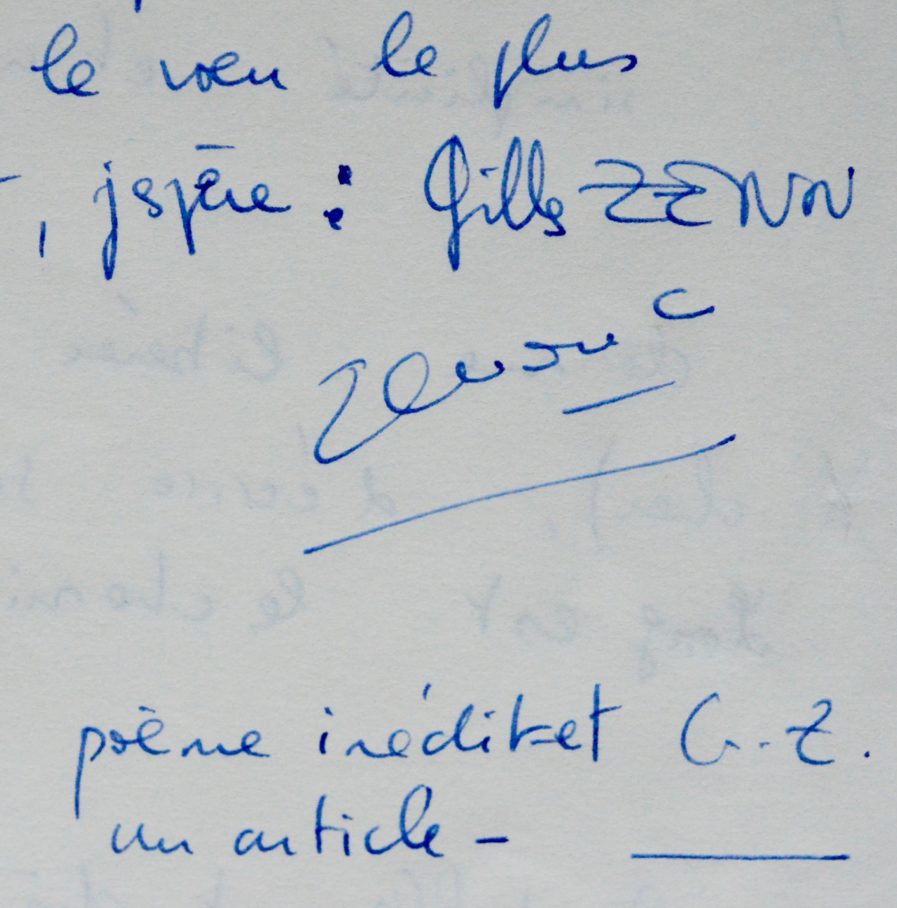 le vœu le plus
, jspère : Gilles ZENOU
Zenou
poème inédit et G.Z.
un article -